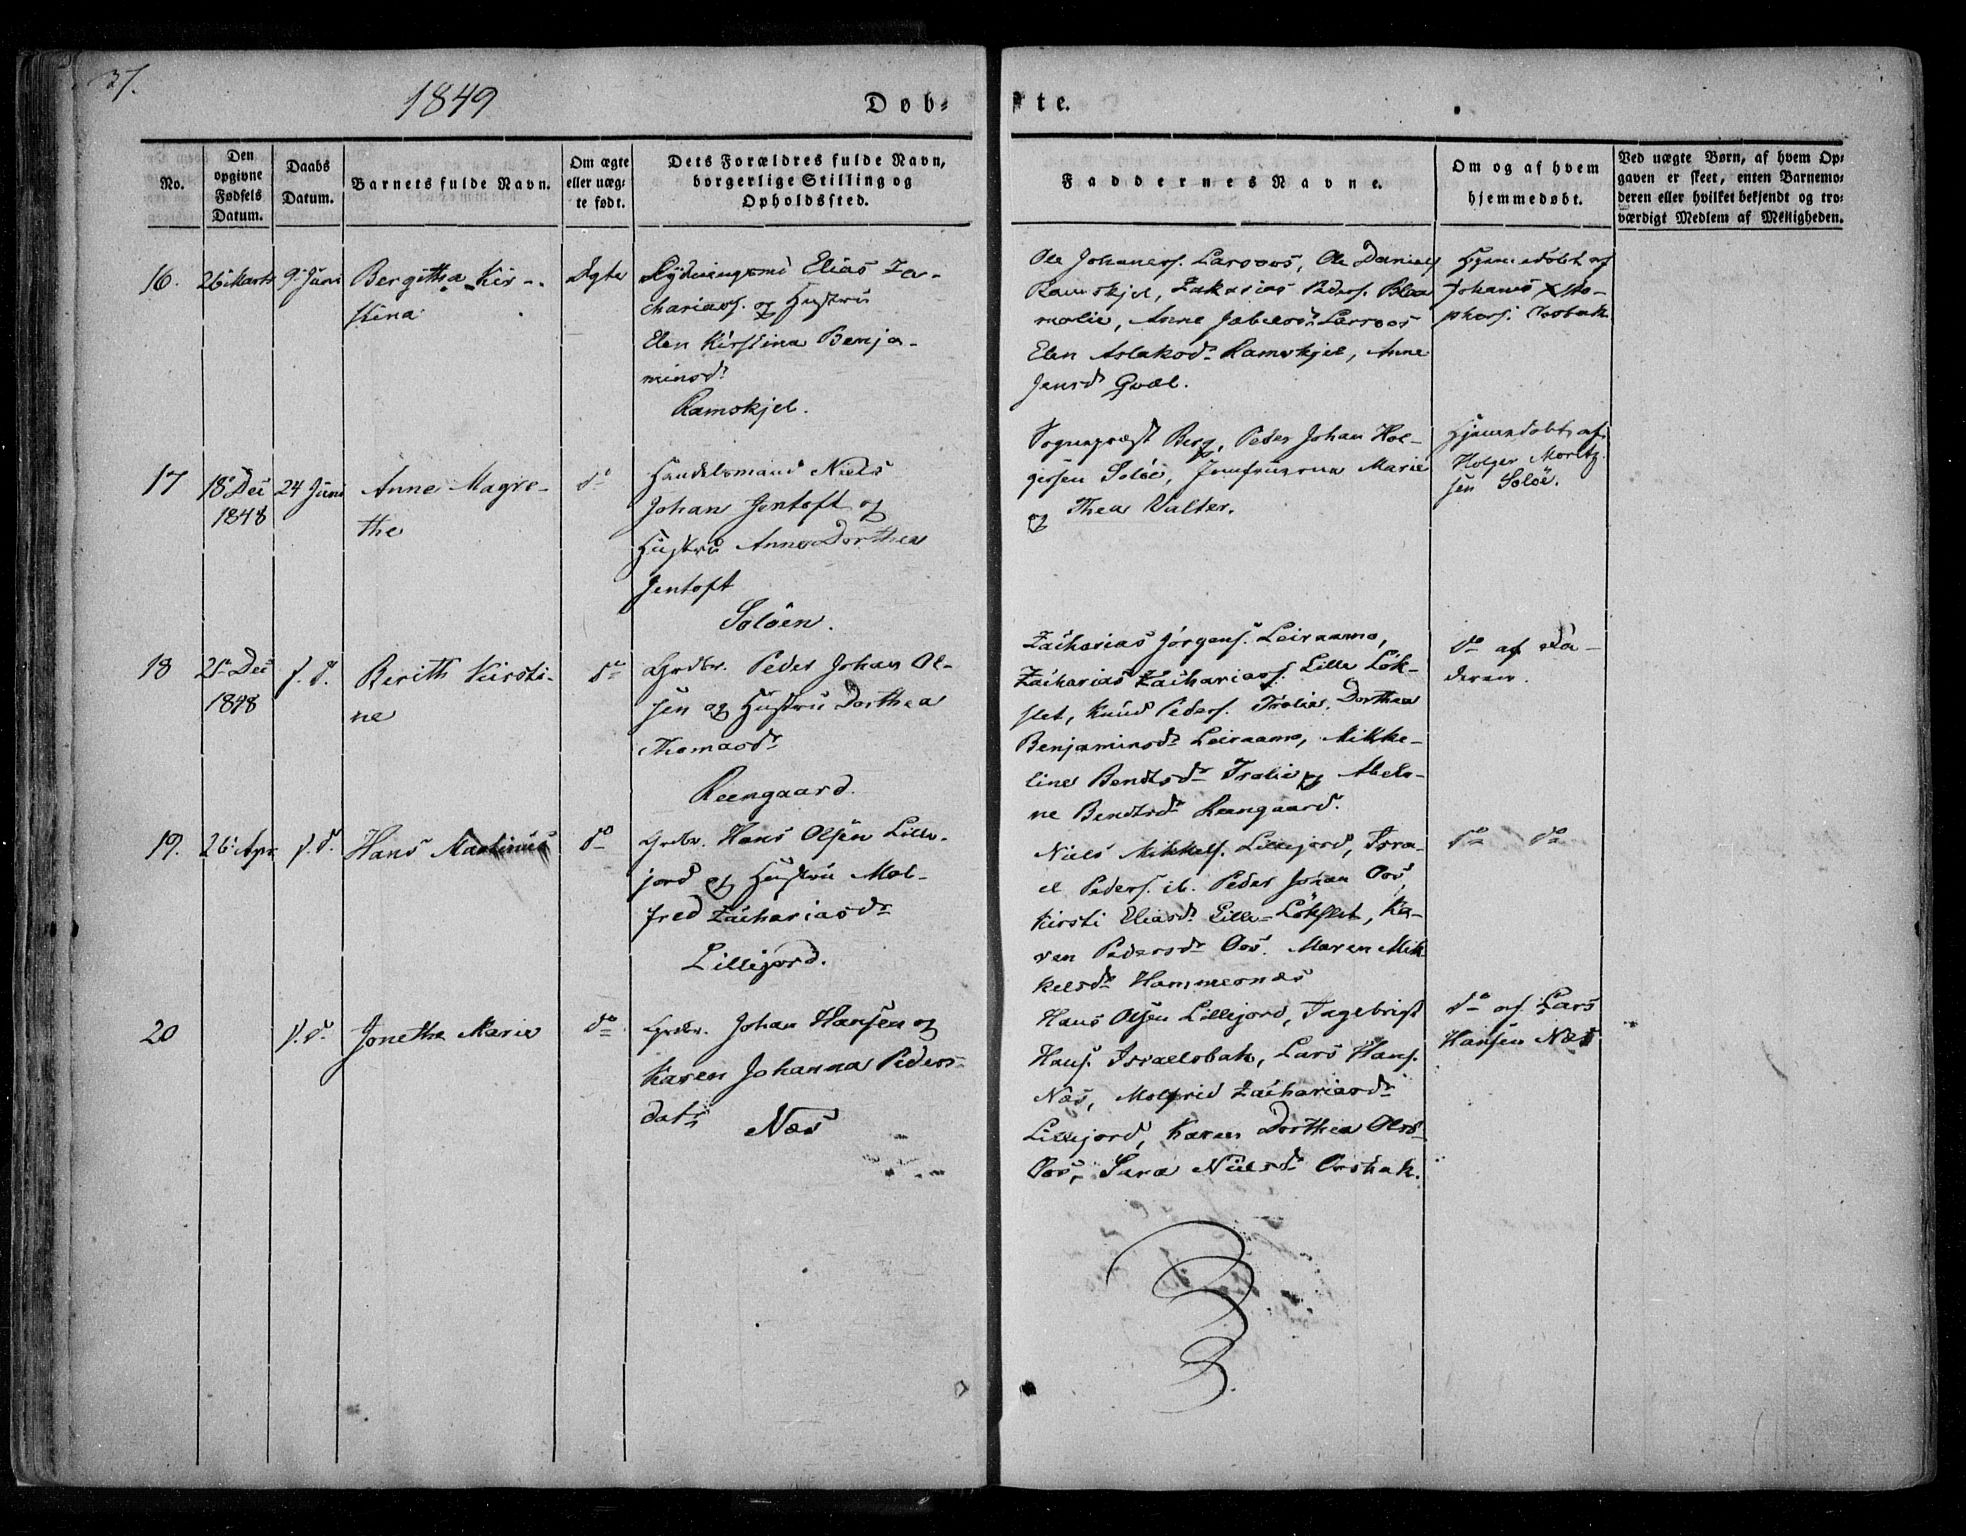 37.
1849
Døb-
te.
No.
Den
opgivne
Fødsels
Datum.
Daabs
Datum.
Barnets fulde Navn.
Om ægte
eller uæg-
te født.
Dets Forældres fulde Navn,
borgerlige Stilling og
Opholdssted.
Faddernes Navne.
Om og af hvem
hjemmedøbt.
Ved uægte Børn, af hvem Op-
gaven er skeet, enten Barnemo-
deren eller hvilket bekjendt og tro-
værdigt Medlem af Menigheden.
16.
26 Marts
9 Juni
Bergitha Kir-
stina
Ægte
Rydningsmd Elias Za-
chariass. og Hustru
Elen Kirstina Benja-
minsd
Ramskjel.
Ole Johaness. Larsoos, Ole Daniels
Ramskjel, Zakarias Peders.
Anne Larsoos
Elen Aslaksd Ramskjel, Anne
Jensd
Hjemmedøbt af
Johanes
17
18 Dec
1848
24 Juni
Anne Magre-
the
do
Handelsmand Niels
Johan Jentoft og
Hustru Anne Dorthea
Jentoft
Soløen.
Sognepræst Berg, Peder Johan Hol-
gersen Soløe, Jomfruerne Marie
og Thea Walter.
Hjemmedøbt af
Holger Moritz-
sen Soløe.
18
21 Dec
1848
s. d.
Berith Kirsti-
ne
do
Grdbr. Peder Johan Ol-
sen og Hustru Dorthea
Thomasdr
Reengaard.
Zacharias Jørgens. Leiraamo,
Zacharias Zachariass. Lille Løk-
slet, Knud Peders. Trolie, Dorthea
Benjaminsdr Leiraamo, Mikke-
line Bendtsdr Trolie og Abelo-
ne Bendtsdr Reengaard.
do af Fa-
deren.
19.
26 Apr.
s. d.
Hans Martinus
do
Grdbr. Hans Olsen Lille-
jord og Hustru Mal-
fred Zachariasdr
Lillejord.
Niels Mikkels. Lillejord, Isra-
el Peders. ib. Peder Johan Oos,
Kirsti Eliasdr Lille-Løkslet, Ka-
ren Pedersdr Oos. Maren Mik-
kelsdr Hammernæs
do do
20
s. d.
Jonetha Marie
do
Grdbr. Johan Hansen og
Karen Johanna Peders-
datr
Næs
Hans Olsen Lillejord, Ingebrigt
Hans. Israelsbak, Lars Hans.
Næs, Malfrid Zachariasdr
Lillejord, Karen Dorthea Olsd
Oos, Sara Nielsdr Oosbak.
do af Lars
Hansen Næs